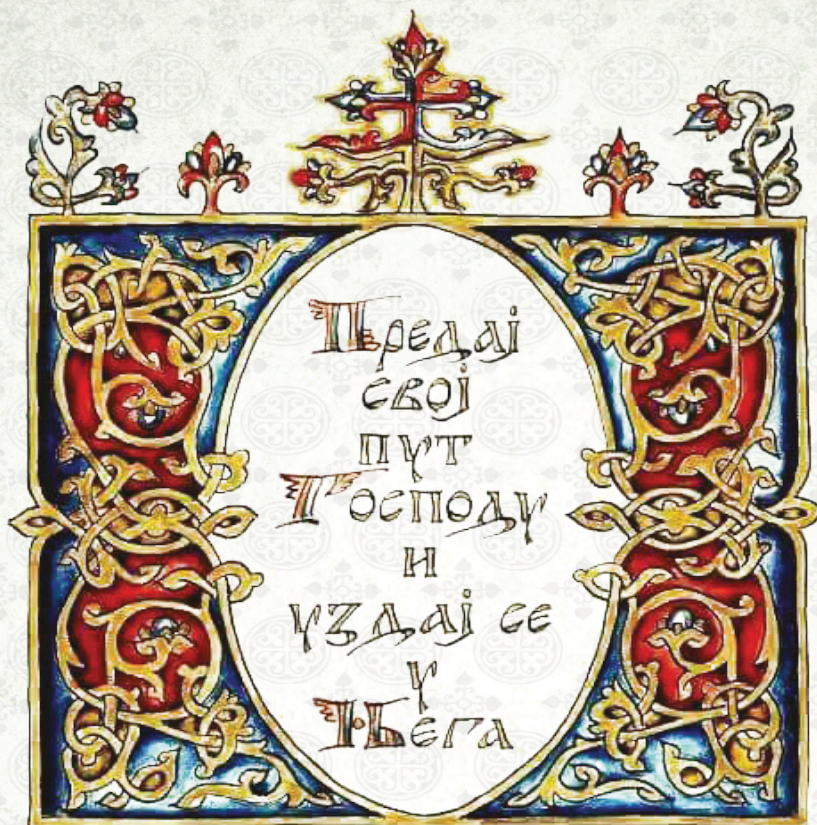 Предај
свој
пут
Господу
и
уздај се
у
Њега